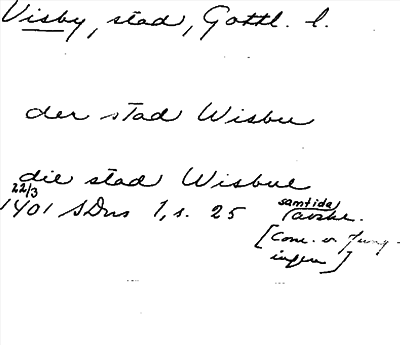 Visby, stad, Gottl. l.
der stad Wisbu
die stad Wisbue
22/3
1401 SDns 1, s. 25 samtida avskr.
[Conr. v Jung-
ingen]